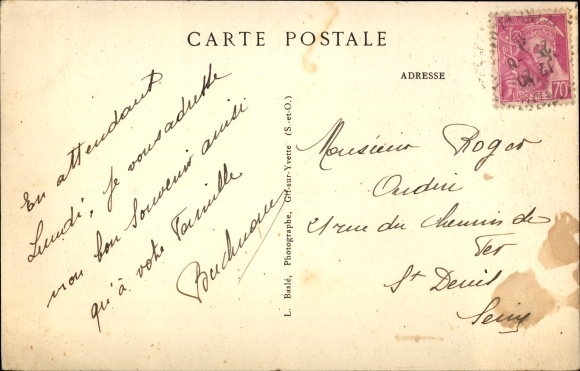 CARTE POSTALE
ADRESSE
POSTES
70
En attendant
Lundi, je vous adresse
mon bon souvenir ainsi
qu'à votre Famille
L. Baslé, Photographe, Gif-sur-Yvette (S.-et-O.)
Monsieur Roger
Oudin
21 rue du Chemin de
Fer
St Denis
Seine